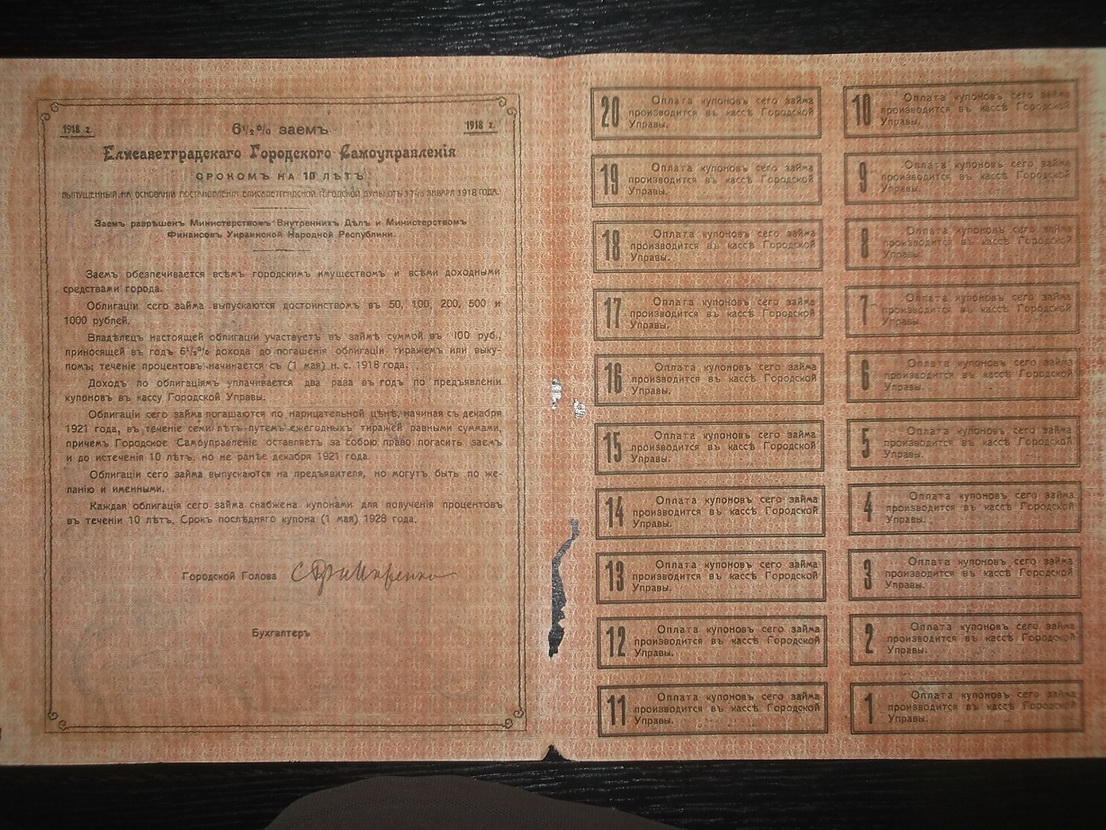 1918 г.
1918 г.
6½% заемъ
Елисаветградскаго Городского Самоуправленія
СРОКОМЪ НА 10 ЛѢТЪ
ВЫПУЩЕННЫЙ НА ОСНОВАНІИ ПОСТАНОВЛЕНІЯ ЕЛИСАВЕТГРАДСКОЙ ГОРОДСКОЙ ДУМЫ ОТЪ ЯНВАРЯ 1918 ГОДА.
Заемъ разрѣшенъ Министерствомъ Внутреннихъ Дѣлъ и Министерствомъ
Финансовъ Украинской Народной Республики.
Заемъ обезпечивается всѣмъ городскимъ имуществомъ и всѣми доходными
средствами города.
Облигаціи сего займа выпускаются достоинствомъ въ 50, 100, 200, 500 и
1000 рублей.
Владѣлецъ настоящей облигаціи участвуетъ въ займѣ суммой въ 100 руб.,
приносящей въ годъ 6½% дохода до погашенія облигаціи тиражемъ или выку-
помъ; теченіе процентовъ начинается съ (1 мая) н. с. 1918 года.
Доходъ по облигаціямъ уплачивается два раза въ годъ по предъявленіи
купоновъ въ кассу Городской Управы.
Облигаціи сего займа погашаются по нарицательной цѣнѣ, начиная съ декабря
1921 года, въ теченіе семи лѣтъ путемъ ежегодныхъ тиражей равными суммами,
причемъ Городское Самоуправленіе оставляетъ за собою право погасить заемъ
и до истеченія 10 лѣтъ, но не ранѣе декабря 1921 года.
Облигаціи сего займа выпускаются на предъявителя, но могутъ быть по же-
ланію и именными.
Каждая облигація сего займа снабжена купонами для полученія процентовъ
въ теченіи 10 лѣтъ. Срокъ послѣдняго купона (1 мая) 1928 года.
Городской Голова
Бухгалтеръ
20 Оплата купоновъ сего займа
производится въ кассѣ Городской
Управы.
19 Оплата купоновъ сего займа
производится въ кассѣ Городской
Управы.
18 Оплата купоновъ сего займа
производится въ кассѣ Городской
Управы.
17 Оплата купоновъ сего займа
производится въ кассѣ Городской
Управы.
16 Оплата купоновъ сего займа
производится въ кассѣ Городской
Управы.
15 Оплата купоновъ сего займа
производится въ кассѣ Городской
Управы.
14 Оплата купоновъ сего займа
производится въ кассѣ Городской
Управы.
13 Оплата купоновъ сего займа
производится въ кассѣ Городской
Управы.
12 Оплата купоновъ сего займа
производится въ кассѣ Городской
Управы.
11 Оплата купоновъ сего займа
производится въ кассѣ Городской
Управы.
10 Оплата купоновъ сего займа
производится въ кассѣ Городской
Управы.
9 Оплата купоновъ сего займа
производится въ кассѣ Городской
Управы.
8 Оплата купоновъ сего займа
производится въ кассѣ Городской
Управы.
7 Оплата купоновъ сего займа
производится въ кассѣ Городской
Управы.
6 Оплата купоновъ сего займа
производится въ кассѣ Городской
Управы.
5 Оплата купоновъ сего займа
производится въ кассѣ Городской
Управы.
4 Оплата купоновъ сего займа
производится въ кассѣ Городской
Управы.
3 Оплата купоновъ сего займа
производится въ кассѣ Городской
Управы.
2 Оплата купоновъ сего займа
производится въ кассѣ Городской
Управы.
1 Оплата купоновъ сего займа
производится въ кассѣ Городской
Управы.